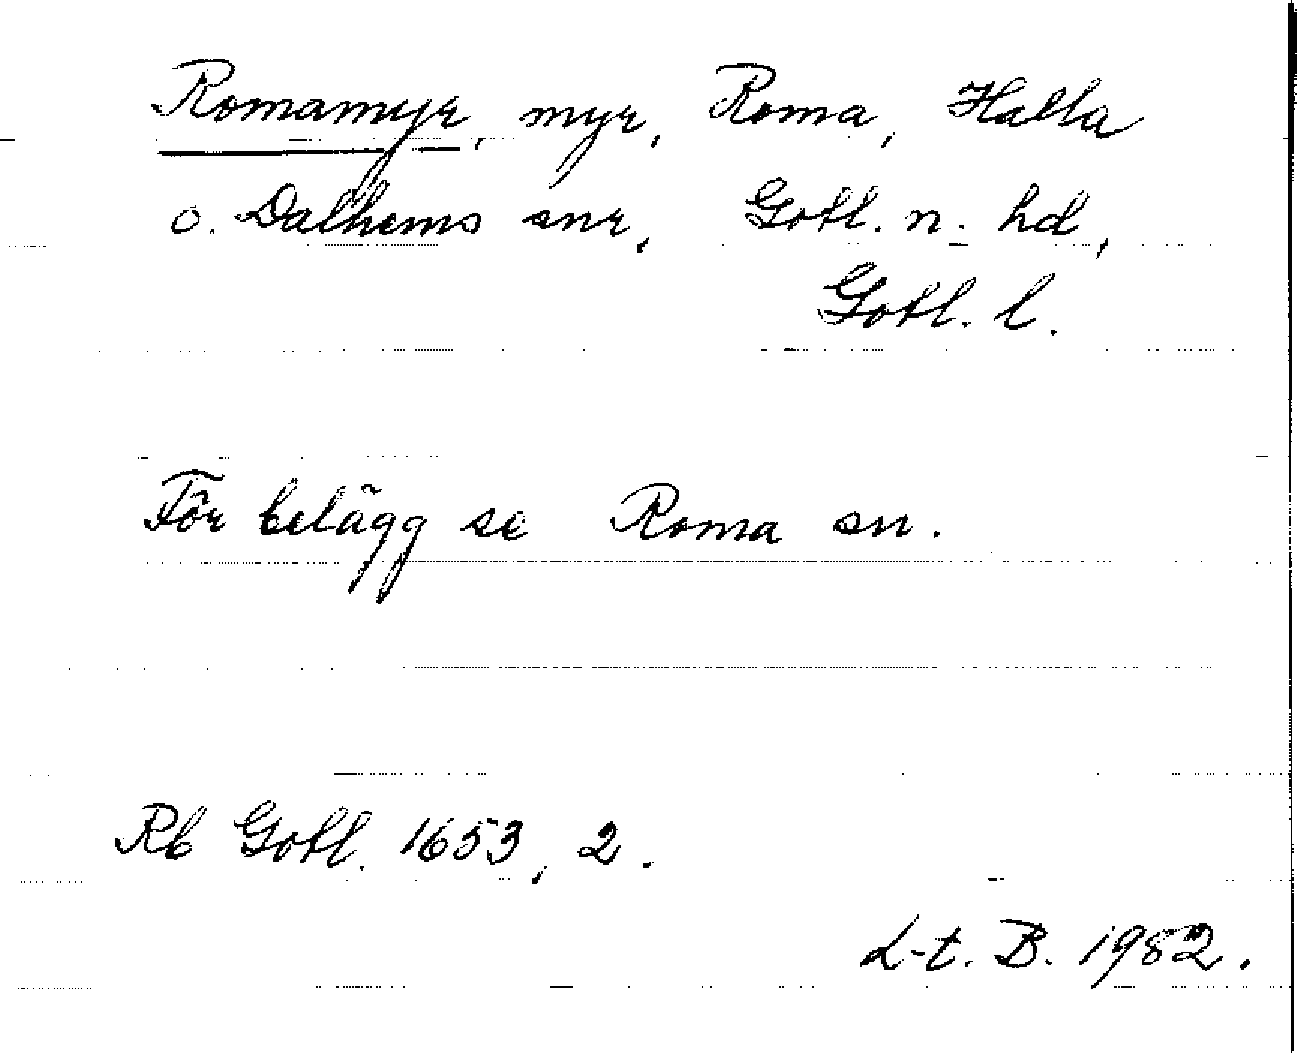 Romamyr, myr, Roma, Halla
o. Dalhems snr, Gotl. n. hd,
Gotl. l.
För belägg se Roma sn.
Rb Gotl. 1653, 2.
L-t. B. 1982.